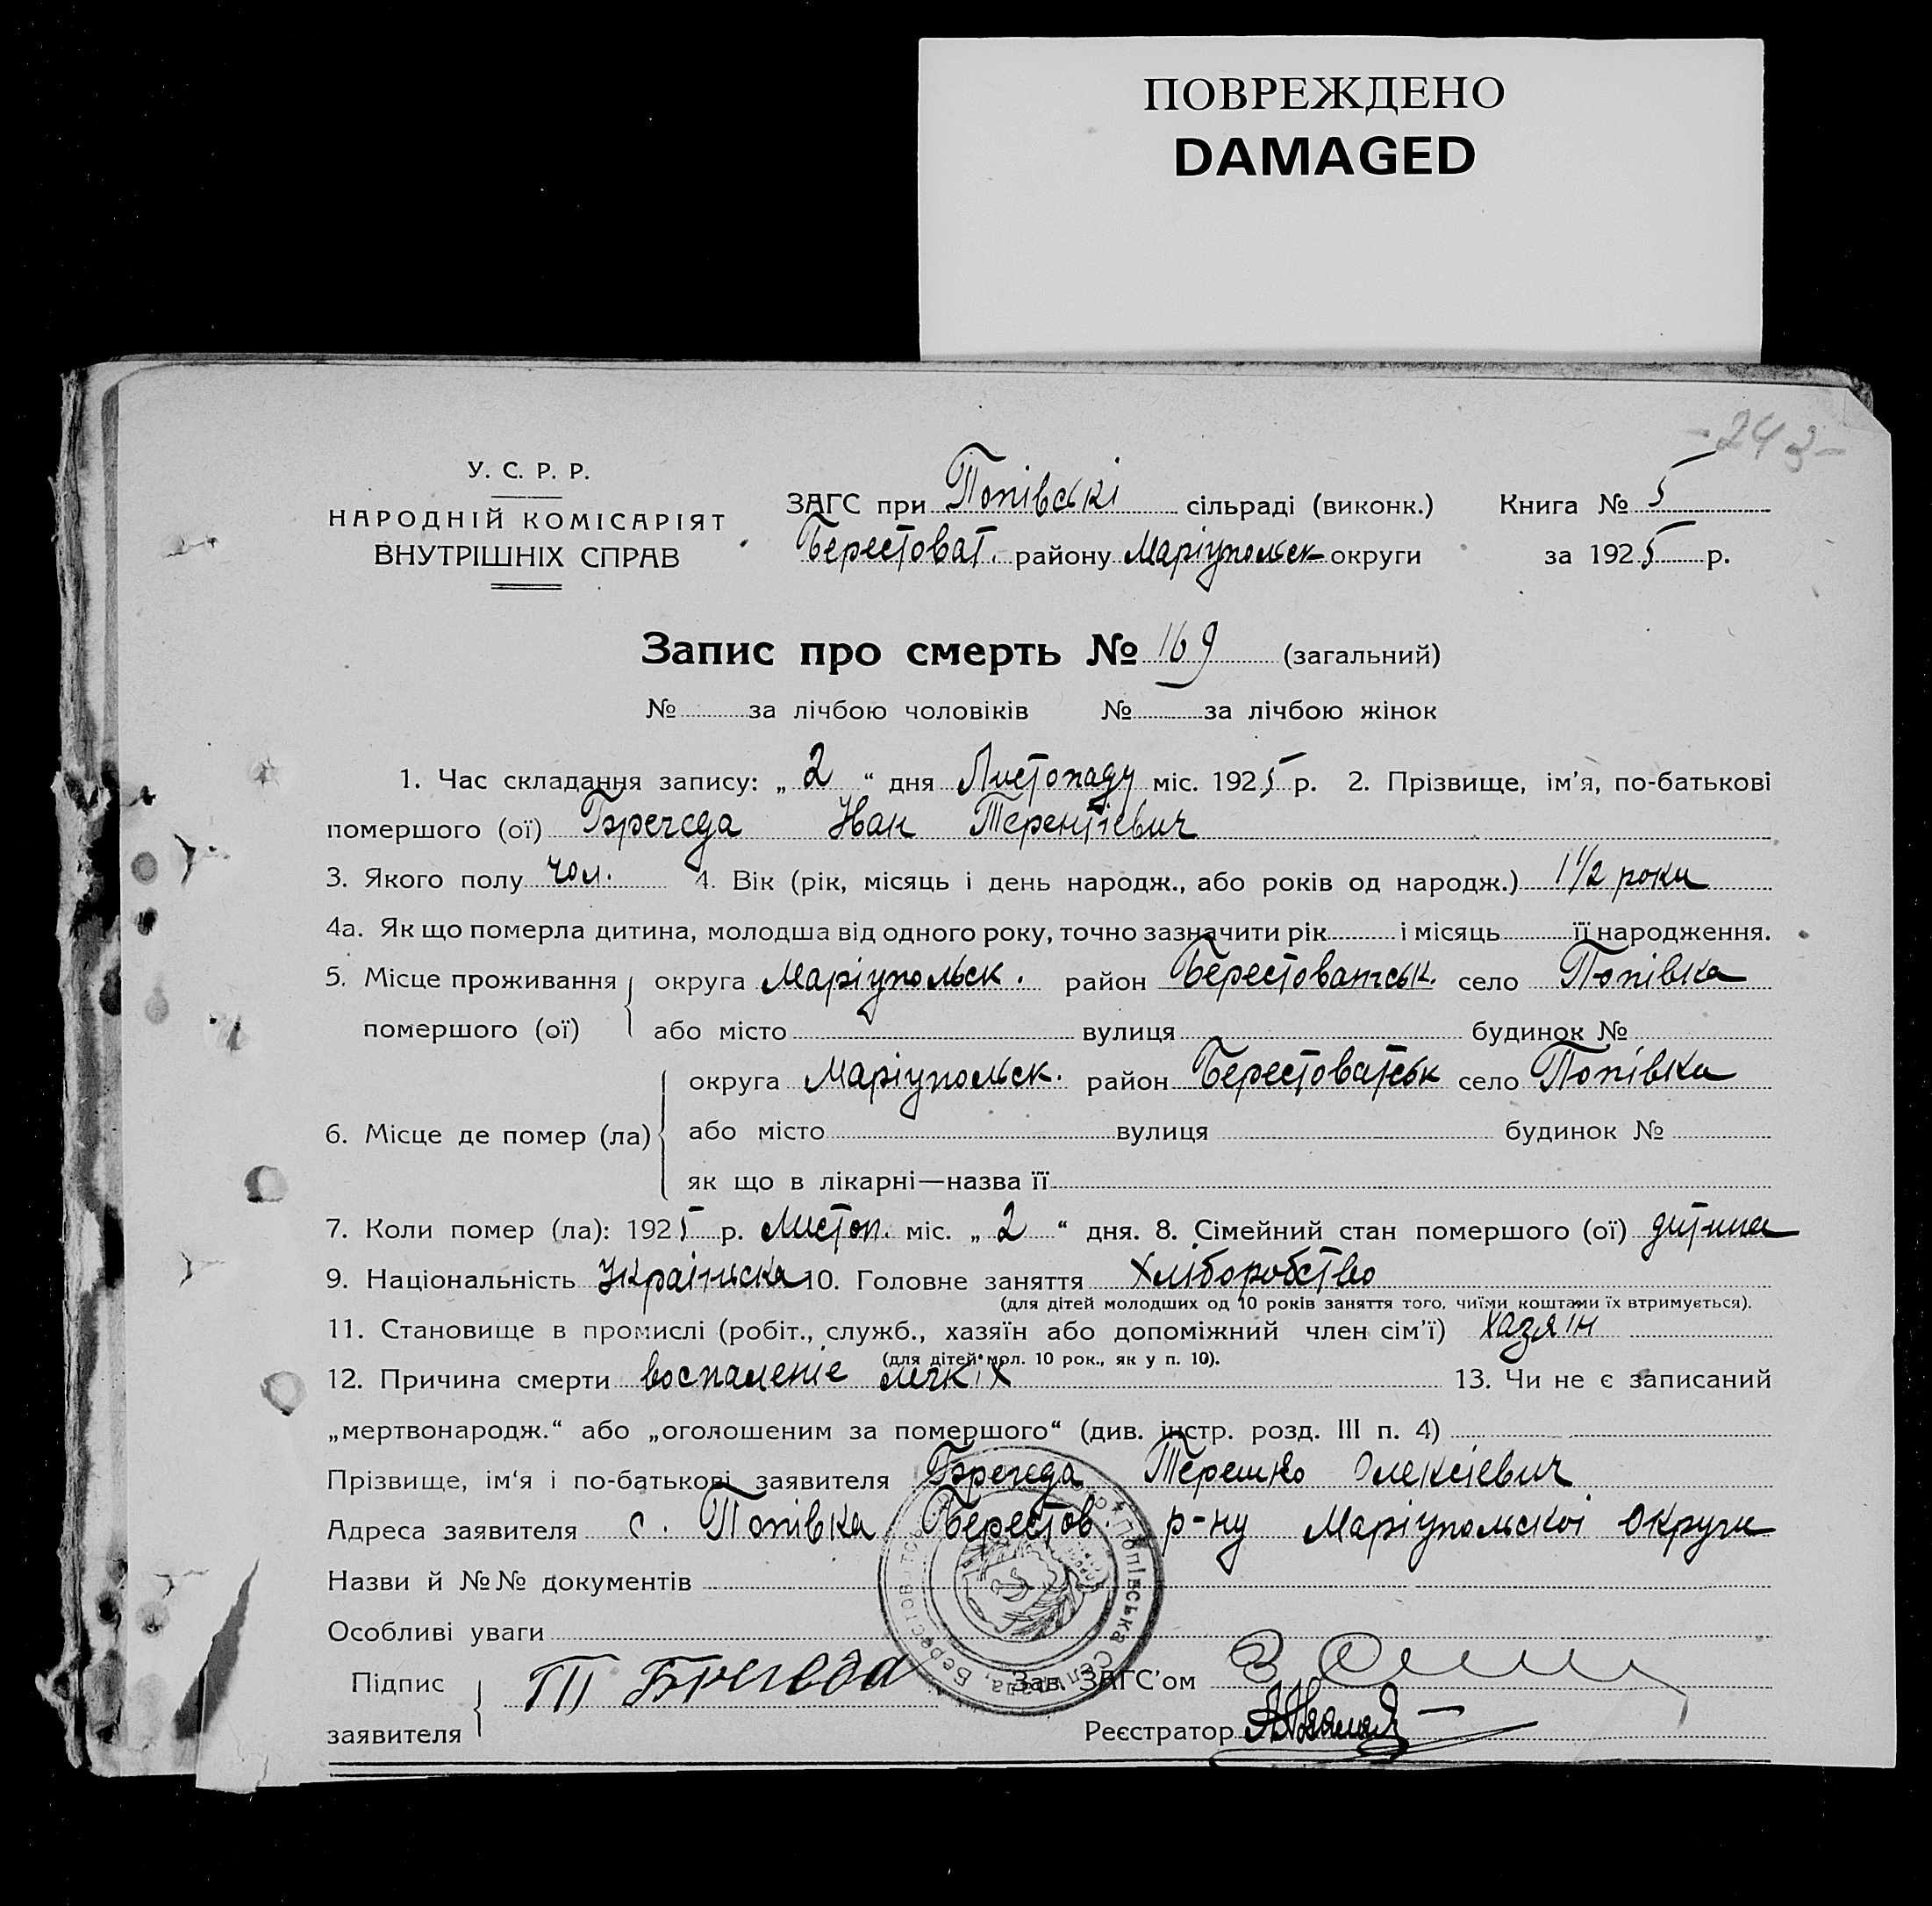 ПОВРЕЖДЕНО
DAMAGED
-243-
У. С. Р. Р.
НАРОДНІЙ КОМІСАРІЯТ
ВНУТРІШНІХ СПРАВ
ЗАГС при Попівські сільраді (виконк.) Книга № 5
Берестоват. району Маріупольск округи за 1925 р.
Запис про смерть № 169 (загальний)
№ за лічбою чоловіків № за лічбою жінок
1. Час складання запису: „2“ дня Листопаду міс. 1925 р. 2. Прізвище, ім'я, по-батькові
помершого (ої) Брегеда Іван Терентіевич
3. Якого полу чол. 4. Вік (рік, місяць і день народж., або років од народж.) 1 1/2 роки
4а. Як що померла дитина, молодша від одного року, точно зазначити рік і місяць її народження.
5. Місце проживання помершого (ої) округа Маріупольск. район Берестоватськ. село Попівка
або місто вулиця будинок №
6. Місце де помер (ла) округа Маріупольск. район Берестоватськ село Попівка
або місто вулиця будинок №
як що в лікарні—назва її
7. Коли помер (ла): 1925 р. Листоп. міс. „2“ дня. 8. Сімейний стан помершого (ої) дитина
9. Національність Українська 10. Головне заняття Хліборобство
(для дітей молодших од 10 років заняття того, чиїми коштами їх втримується).
11. Становище в промислі (робіт., служб., хазяїн або допоміжний член сім'ї) Хазяін
(для дітей мол. 10 рок., як у п. 10).
12. Причина смерти воспаленіе легкіх 13. Чи не є записаний
„мертвонародж.“ або „оголошеним за помершого“ (див. інстр. розд. III п. 4)
Прізвище, ім'я і по-батькові заявителя Брегеда Терешко Олексіевич
Адреса заявителя с. Попівка Берестов. р-ну Маріупольскоі Округи
Назви й №№ документів
Особливі уваги
Підпис заявителя Т Брегеда Зав. ЗАГС'ом
Реєстратор
Попівська Сельрада, Берестов